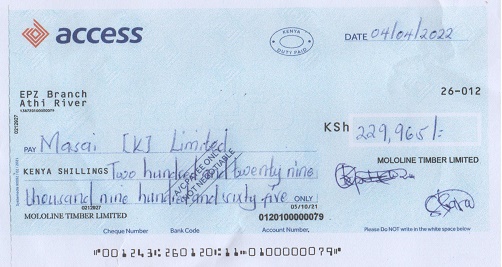 access
KENYA
DUTY PAID
DATE 04/04/2022
EPZ Branch
Athi River
26-012
PAY Masai [K] Limited
KSh 229,965/=
KENYA SHILLINGS Two hundred and twenty nine
thousand nine hundred and sixty five ONLY
A/C PAYEE ONLY
NOT NEGOTIABLE
MOLOLINE TIMBER LIMITED
MOLOLINE TIMBER LIMITED
05/10/21
0120100000079
Cheque Number Bank Code Account Number.
Please Do NOT write in the white space below
"001243:260120:11:0100000079"